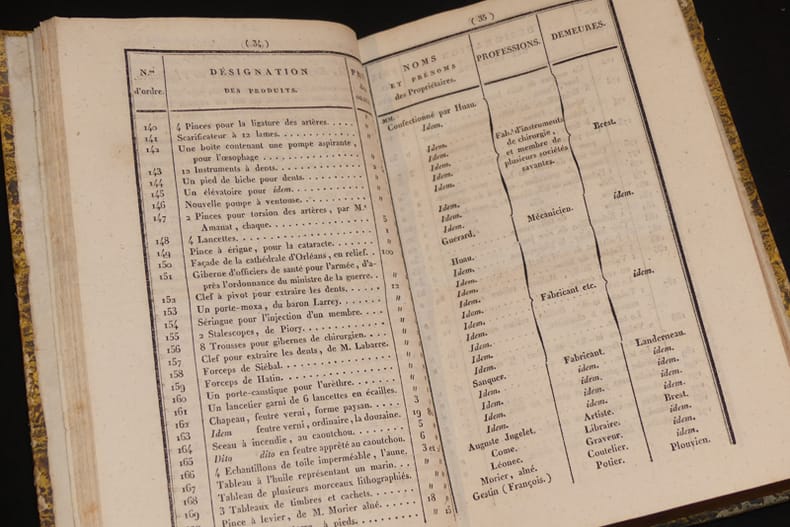 ( 34 )
N.ᵒˢ
d'ordre.
DÉSIGNATION
DES PRODUITS.
140 4 Pinces pour la ligature des artères. "
141 Scarificateur à 12 lames. "
142 Une boite contenant une pompe aspirante,
pour l'œsophage "
143 12 Instruments à dents. "
144 Un pied de biche pour dents. "
145 Un élévatoire pour idem. "
146 Nouvelle pompe à ventouse. "
147 2 Pinces pour torsion des artères, par M.
Amanat, chaque. 5
148 4 Lancettes.
149 Pince à érigne, pour la cataracte. "
150 Façade de la cathédrale d'Orléans, en relief. 100
151 Giberne d'officiers de santé pour l'armée, d'a-
près l'ordonnance du ministre de la guerre. "
152 Clef à pivot pour extraire les dents. 12
153 Un porte-moxa, du baron Larrey. "
154 Séringue pour l'injection d'un membre. "
155 2 Stalescopes, de Piory. "
156 8 Trousses pour gibernes de chirurgien. "
157 Clef pour extraire les dents, de M. Labarre. "
158 Forceps de Siébal. "
159 Forceps de Hatin. "
160 Un porte-caustique pour l'urèthre. "
161 Un lancetier garni de 6 lancettes en écailles. "
162 Chapeau, feutre verni, forme paysan. 3
163 Idem feutre verni, ordinaire, la douzaine. 19
164 Sceau à incendie, au caoutchou. 5
165 Dito dito en feutre apprêté au caoutchou. 6
166 4 Echantillons de toile imperméable, l'aune. 3 et
167 Tableau à l'huile représentant un marin. "
168 Tableau de plusieurs morceaux lithographiés. "
169 3 Tableaux de timbres et cachets. "
Pince à levier, de M. Morier aîné. 18
à pieds. "
( 35 )
NOMS
ET PRÉNOMS
des Propriétaires.
PROFESSIONS.
DEMEURES.
MM.
Confectionné par Huau.
Idem.
Idem.
Idem.
Idem.
Idem.
Idem.
Idem.
Idem.
Guérard.
Fab.ᵗ d'instruments
de chirurgie,
et membre de
plusieurs sociétés
savantes.
Brest.
Mécanicien.
idem.
Huau.
Idem.
Idem.
Idem.
Idem.
Idem.
Idem.
Idem.
Idem.
Fabricant etc.
idem.
Sanquer. Fabricant. Landerneau.
Idem. idem. idem.
Idem. idem. idem.
Idem. idem. idem.
Idem. idem. idem.
Auguste Jugelet. Artiste. Brest.
Come. Libraire. idem.
Léonec. Graveur. idem.
Morier, aîné. Coutelier. idem.
Gestin (François.) Potier. Plouyien.